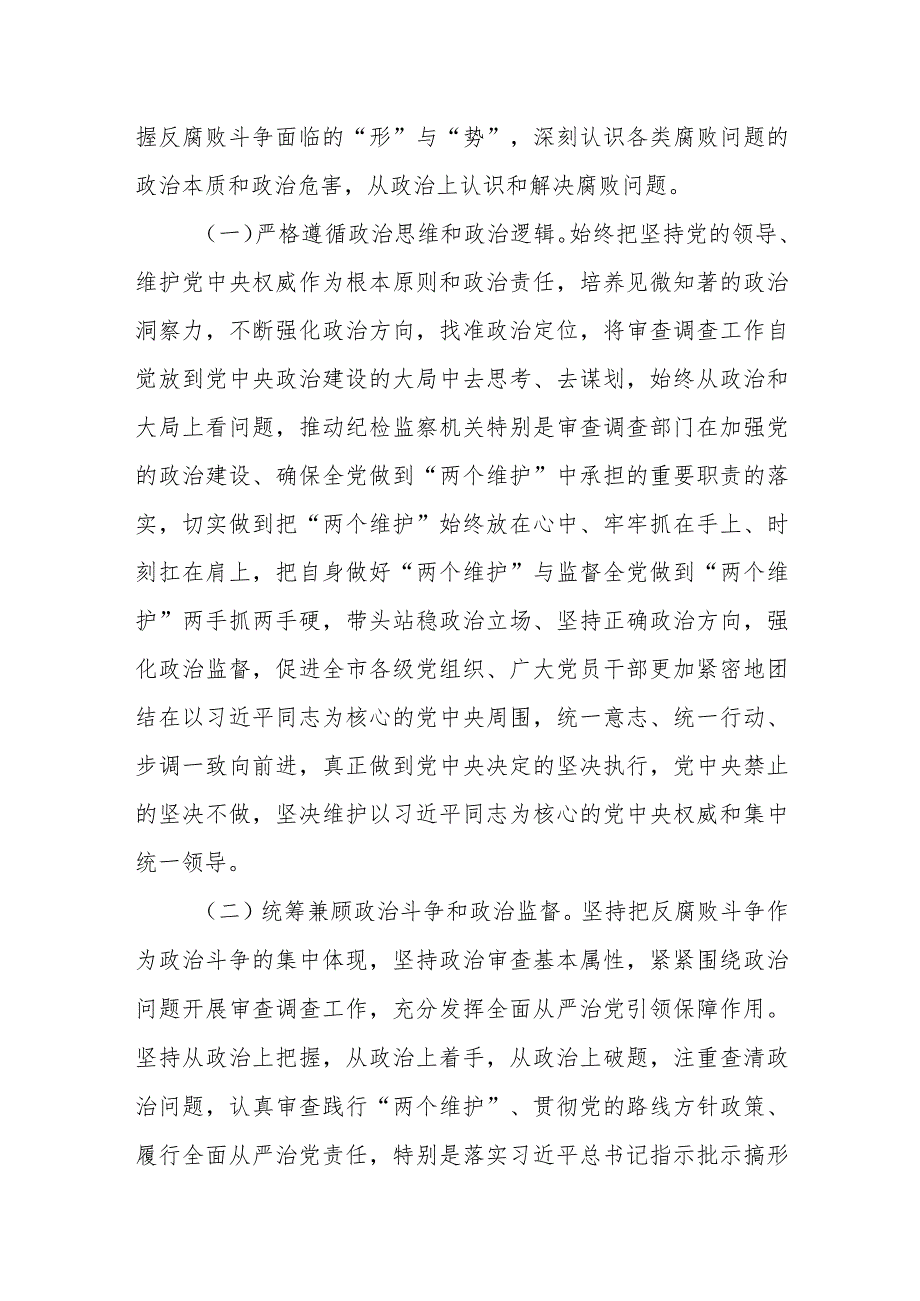 握反腐败斗争面临的“形”与“势”，深刻认识各类腐败问题的
政治本质和政治危害，从政治上认识和解决腐败问题。
（一）严格遵循政治思维和政治逻辑。始终把坚持党的领导、
维护党中央权威作为根本原则和政治责任，培养见微知著的政治
洞察力，不断强化政治方向，找准政治定位，将审查调查工作自
觉放到党中央政治建设的大局中去思考、去谋划，始终从政治和
大局上看问题，推动纪检监察机关特别是审查调查部门在加强党
的政治建设、确保全党做到“两个维护”中承担的重要职责的落
实，切实做到把“两个维护”始终放在心中、牢牢抓在手上、时
刻扛在肩上，把自身做好“两个维护”与监督全党做到“两个维
护”两手抓两手硬，带头站稳政治立场、坚持正确政治方向，强
化政治监督，促进全市各级党组织、广大党员干部更加紧密地团
结在以习近平同志为核心的党中央周围，统一意志、统一行动、
步调一致向前进，真正做到党中央决定的坚决执行，党中央禁止
的坚决不做，坚决维护以习近平同志为核心的党中央权威和集中
统一领导。
（二）统筹兼顾政治斗争和政治监督。坚持把反腐败斗争作
为政治斗争的集中体现，坚持政治审查基本属性，紧紧围绕政治
问题开展审查调查工作，充分发挥全面从严治党引领保障作用。
坚持从政治上把握，从政治上着手，从政治上破题，注重查清政
治问题，认真审查践行“两个维护”、贯彻党的路线方针政策、
履行全面从严治党责任，特别是落实习近平总书记指示批示搞形